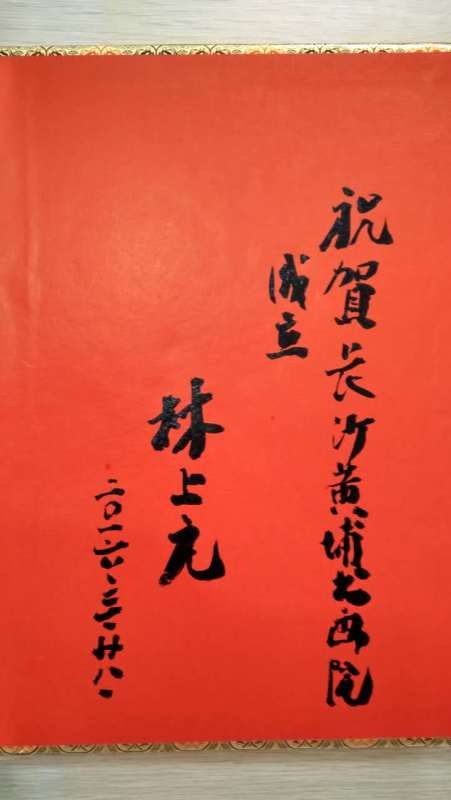 祝賀长沙黄埔书画院
成立
林上元
二〇一六、三、廿八、